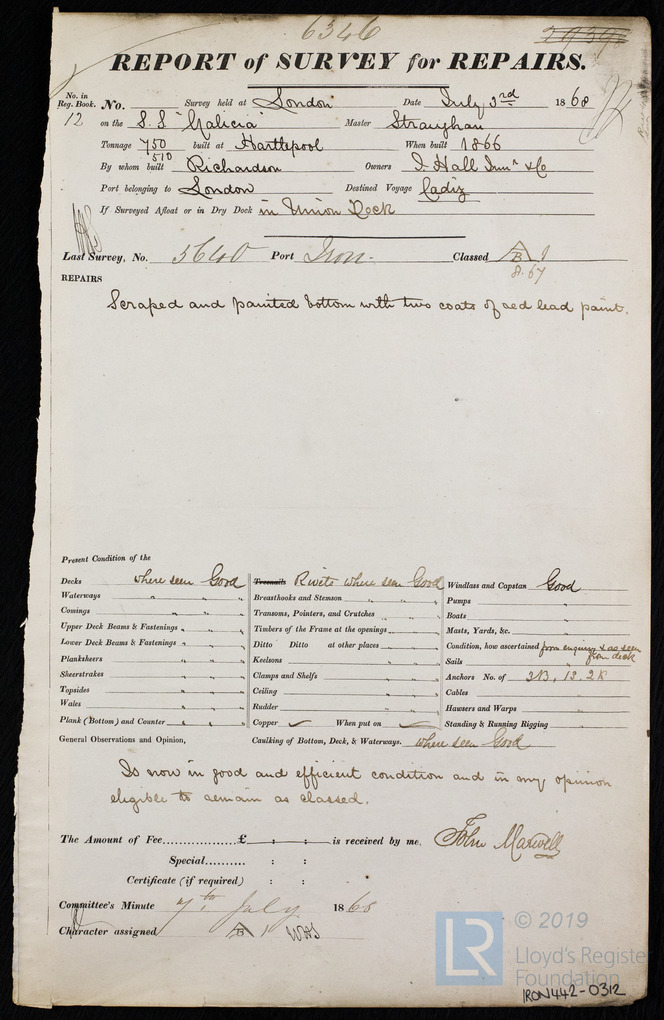 6346
REPORT of SURVEY for REPAIRS.
No. in Reg. Book. No. Survey held at London Date July 3rd 1868
12 on the S.S. "Galicia" Master Straughan
Tonnage 750 built at Hartlepool When built 1866
510
By whom built Richardson Owners J. Hall Junr & Co
Port belonging to London Destined Voyage Cadiz
If Surveyed Afloat or in Dry Dock in Union Dock
Last Survey, No. 5640 Port Iron. Classed A 1
B
8.67
REPAIRS
Scraped and painted bottom with two coats of red lead paint.
Present Condition of the
Decks where seen Good Treenails Rivets where seen Good Windlass and Capstan Good
Waterways " " " Breasthooks and Stemson " " " Pumps "
Comings " " " Transoms, Pointers, and Crutches " " " Boats "
Upper Deck Beams & Fastenings " " " Timbers of the Frame at the openings " " " Masts, Yards, &c. "
Lower Deck Beams & Fastenings " " " Ditto Ditto at other places " " " Condition, how ascertained from enquiry & as seen from deck
Planksheers " " " Keelsons " " " Sails "
Sheerstrakes " " " Clamps and Shelfs " " " Anchors No. of 3B, 1S, 2K
Topsides " " " Ceiling " " " Cables "
Wales " " " Rudder " " " Hawsers and Warps "
Plank (Bottom) and Counter " " " Copper When put on Standing & Running Rigging "
General Observations and Opinion, Caulking of Bottom, Deck, & Waterways. where seen Good
Is now in good and efficient condition and in my opinion
eligible to remain as classed.
The Amount of Fee................£ : : is received by me, John Maxwell
Special.......... : :
Certificate (if required) : :
Committee's Minute 7th July 1868
Character assigned A 1
B
LR
© 2019
Lloyd's Register
Foundation
IRON442-0312